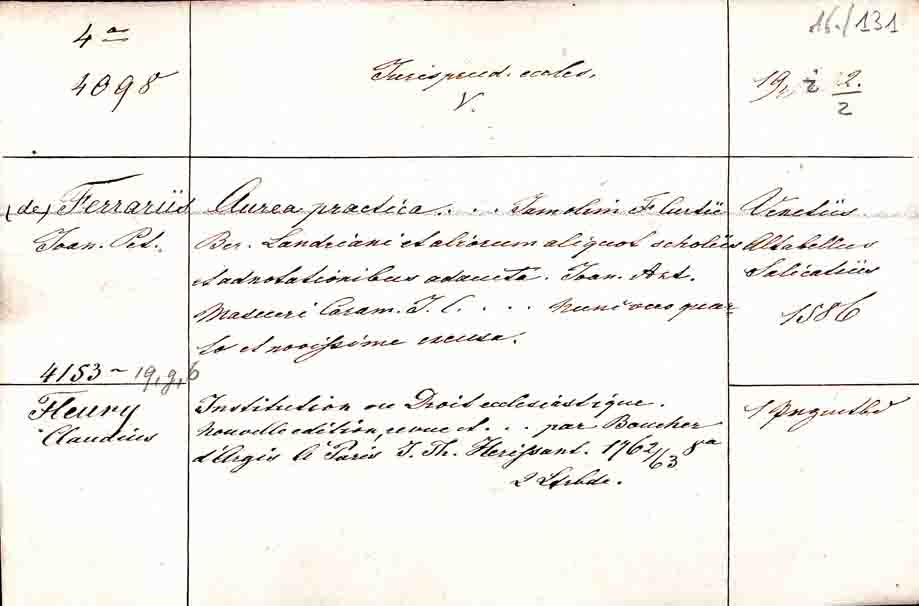 16./131
4a
4098
Jurisprud. eccles.
V.
19, i 2.
2
(de) Ferrariis
Joan. Pet.
Aurea practica .... Jamolim F. Curtii
Ber. Landriani et aliorum aliquot scholiis
et adnotationibus adaucta. Joan. Ant.
Masueri Coram. J. C. .... nunc vero quar-
to et novissime excusa.
Venetiis
Altabellus
Salicatius
1586
4153 ~ 19, g, 6
Fleury
Claudius
Institution au Droit ecclesiastique.
Nouvelle edition, revue et ... par Boucher
d'Argis à Paris J. Th. Herissant. 1762/63 8a
2 Lfrbde.
1 Prgmtbd